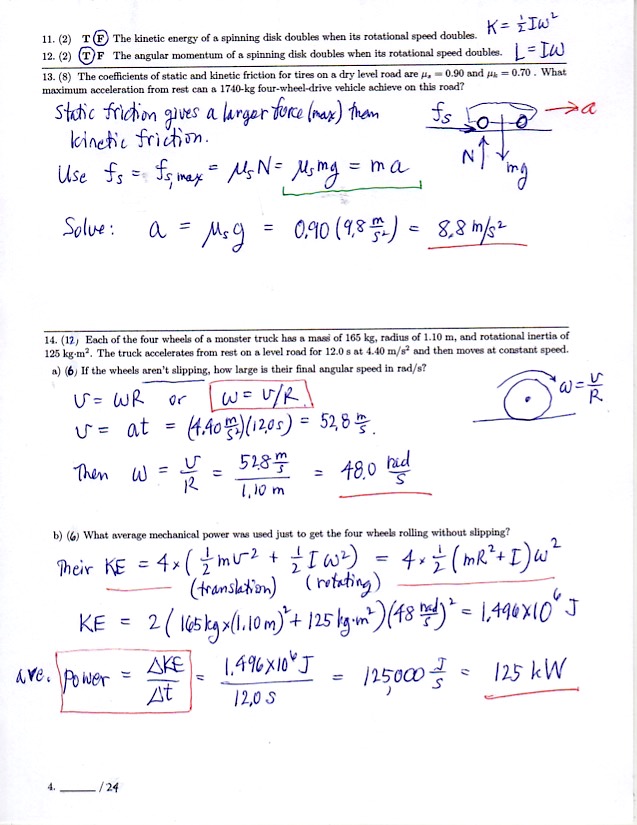 11. (2) T (F) The kinetic energy of a spinning disk doubles when its rotational speed doubles. K = ½Iω²
12. (2) (T) F The angular momentum of a spinning disk doubles when its rotational speed doubles. L = Iω
13. (8) The coefficients of static and kinetic friction for tires on a dry level road are μs = 0.90 and μk = 0.70 . What
maximum acceleration from rest can a 1740-kg four-wheel-drive vehicle achieve on this road?
Static friction gives a larger force (max) than
kinetic friction.
fs → a
N mg
Use fs = fs,max = μsN = μsmg = ma
Solve: a = μsg = 0.90 (9.8 m/s²) = 8.8 m/s²
14. (12) Each of the four wheels of a monster truck has a mass of 165 kg, radius of 1.10 m, and rotational inertia of
125 kg·m². The truck accelerates from rest on a level road for 12.0 s at 4.40 m/s² and then moves at constant speed.
a) (6) If the wheels aren't slipping, how large is their final angular speed in rad/s?
v = ωR or ω = v/R. ω = v/R
v = at = (4.40 m/s²)(12.0s) = 52.8 m/s.
Then ω = v/R = 52.8 m/s / 1.10 m = 48.0 rad/s
b) (6) What average mechanical power was used just to get the four wheels rolling without slipping?
Their KE = 4×(½mv² + ½Iω²) = 4×½(mR²+I)ω²
(translation) (rotating)
KE = 2(165kg×(1.10m)²+125kg·m²)(48 rad/s)² = 1.496×10⁶ J
ave. Power = ΔKE/Δt = 1.496×10⁶ J / 12.0 s = 125,000 J/s = 125 kW
4. ______ /24